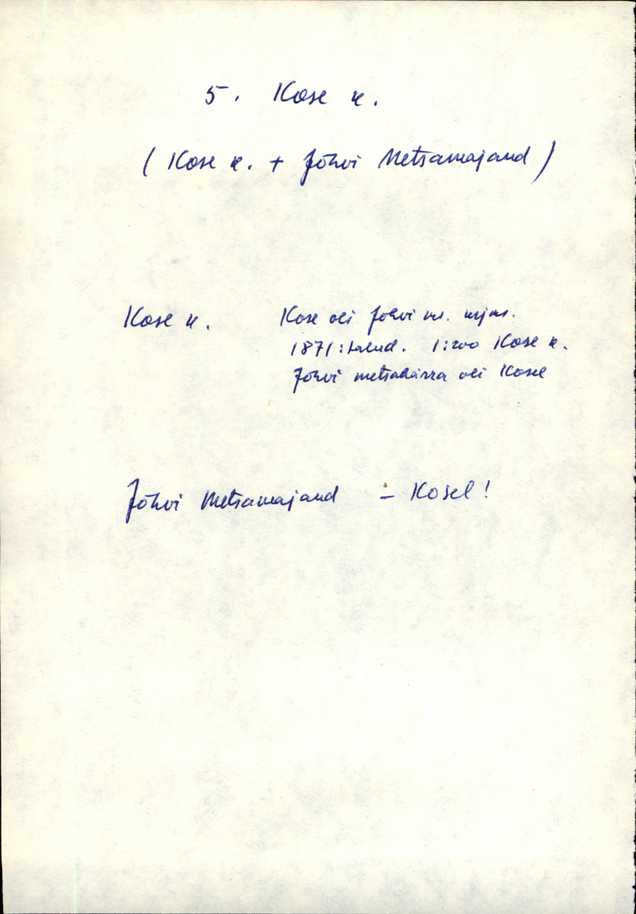 5. Kose k.
(Kose k. + Jõhvi Metsamajand)
Kose k. Kose oli Jõhvi m.
1871: talud. 1:200 Kose k.
Jõhvi metsahärra oli Kosel
Jõhvi Metsamajand – Kosel!